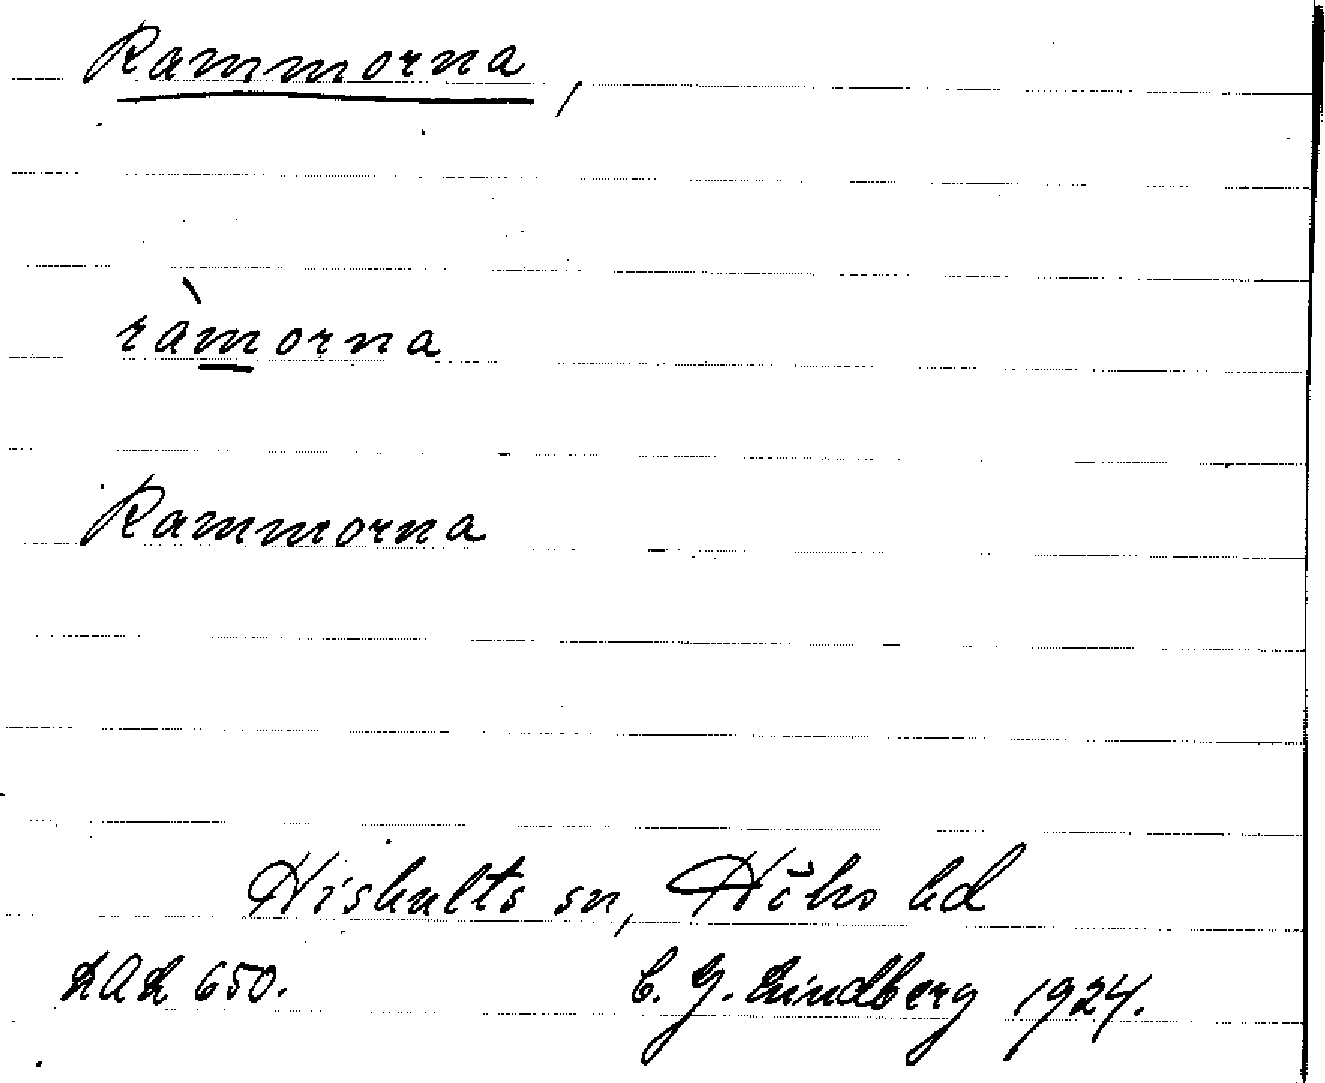 Rammorna,
ràmorna
Rammorna
Hishults sn, Höks hd
LAL 650. C. G. Lindberg 1924.